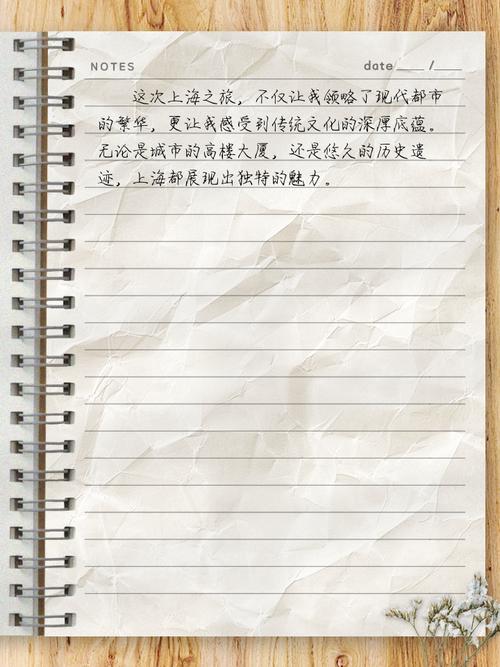 NOTES date ____ / ____
这次上海之旅，不仅让我领略了现代都市
的繁华，更让我感受到传统文化的深厚底蕴。
无论是城市的高楼大厦，还是悠久的历史遗
迹，上海都展现出独特的魅力。